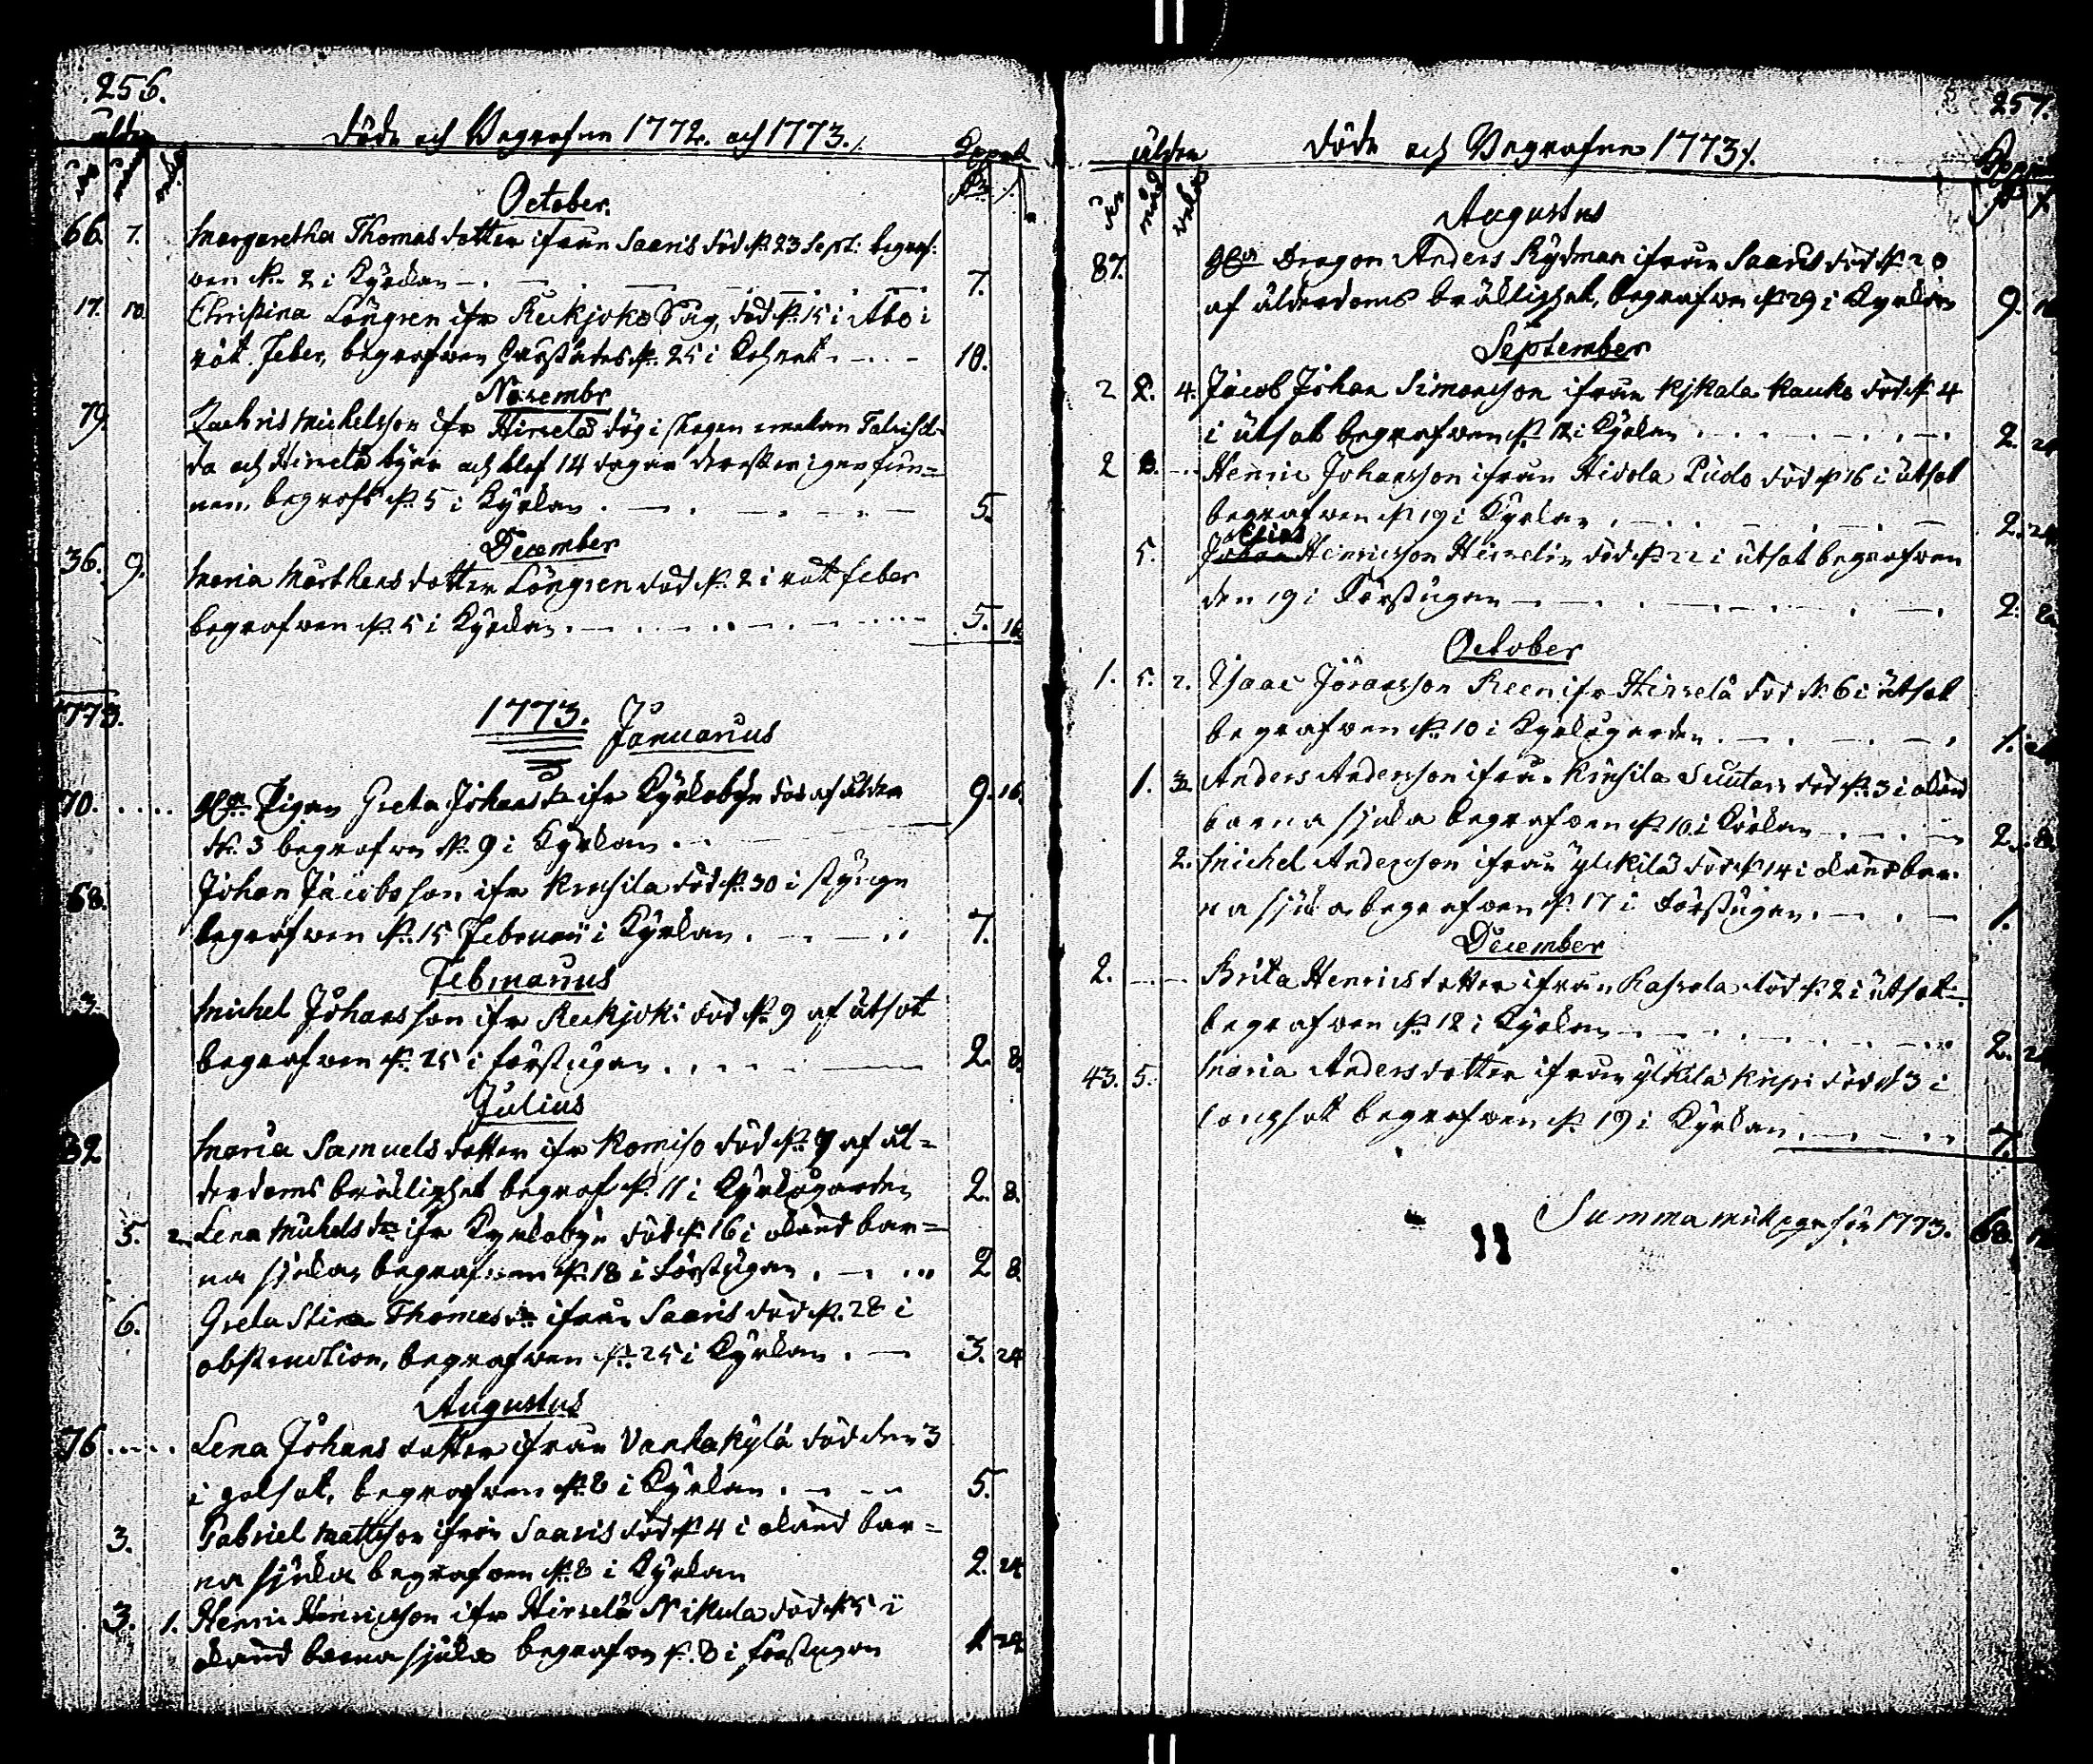 256.
ålder
Döde och Begrafne 1772. och 1773.
October.
66. 7. Margaretha Thomas dotter ifrån Saaris död d. 23 Sept: begraf:
wen d. 2 i Kyrkan 7.
17. 10. Christina Löngren ifr Kuckjoki Såg, död d. 15 i Åbo i
röt feber, begrafwen d. 25 i 10.
Novembr
79. Zachris Michelsson ifr Hirvelä dog i skogen emellan
da och Hirvelä byar och blef 14 dagar derefter igen fun=
nen, begrofs d. 5 i Kyrkan 5.
December
36. 9. Maria Mårthens dotter Löngren död d. 2 i röt feber
begrafwen d. 5 i Kyrkan 5. 16
1773.
1773. Januarius
70. Pigan Greta Johans dr ifr Kyrkobyn död af ålder 9. 16.
d. 3 begrafwen d. 9 i Kyrkan
68. Johan Jacobsson ifr Krusila död d. 30 i styng
begrafwen d. 15 Februarii i Kyrkan 7.
Februarius
3. Michel Johansson ifr Reckjoki död d. 9 af utsot
begrafwen d. 25 i förstugan 2. 8.
Julius
82 Maria Samuels dotter ifr Romiso död d. 9 af ål=
derdoms bräcklighet begrafn d. 11 i Kyrkogården 2. 8.
5. 2. Lena Michels dr ifr Kyrkobyn död d. 16 i okänd bar=
na sjuka, begrafwen d. 18 i förstugan 2 8.
6. Greta Stina Thomas dr ifrån Saaris död d. 28 i
obstruction, begrafwen d. 25 i Kyrkan 3. 24
Augustus
76 Lena Johans dotter ifrån Vanhakylä död den 3
i gulsot, begrafwen d. 8 i Kyrkan 5.
3. Gabriel Mattsson ifrån Saaris död d. 4 i okänd bar=
na sjuka begrafwen d. 8 i Kyrkan 2. 24
3. 1. Henric Henricsson ifr Hirvelä Nikula död d. 5 i
okänd barna sjuka begrafwen d. 8 i förstugan 1 24
257.
ålder
Döde och Begrafne 1773.
år månad veckor
Augustus
87. Dragon Anders Rydman ifrån Saaris död d. 20
af ålderdoms bräcklighet, begrafwen d. 29 i Kyrkan 9.
September
2 8. 4. Jacob Johan Simonsson ifrån Kykala Kauko död d. 4
i utsot begrafwen d. 12 i Kyrkan 2. 24
2 8. Henric Johansson ifrån Hidola Pudo död d. 16 i utsot
begrafwen d. 19 i Kyrkan 2. 24
Elias
5. Johan Henricsson Hirvelin död d. 22 i utsot begrafwen
den 19 i Förstugan 2.
October
1. 5. 2. Isaac Göransson Reen ifr Hirvelä död d. 6 i utsot
begrafwen d. 10 i Kyrkogården 1.
1. 3. Anders Andersson ifrån Krusila Suutari död d. 3 i okänd
barna sjuka begrafwen d. 10 i Kyrkan 2. 8.
2. Michel Andersson ifrån Ylikylä död d. 14 i okänd bar
na sjuka begrafwen d. 17 i Förstugan 1.
December
2. Brita Henrics dotter ifrån Kassala död d. 2 i utsot
begrafwen d. 12 i Kyrkan 2.
43. 5. Maria Anders dotter ifrån Ylikylä död d 3 i
lungsot begrafwen d. 19 i Kyrkan 7.
Summa för 1773. 68.